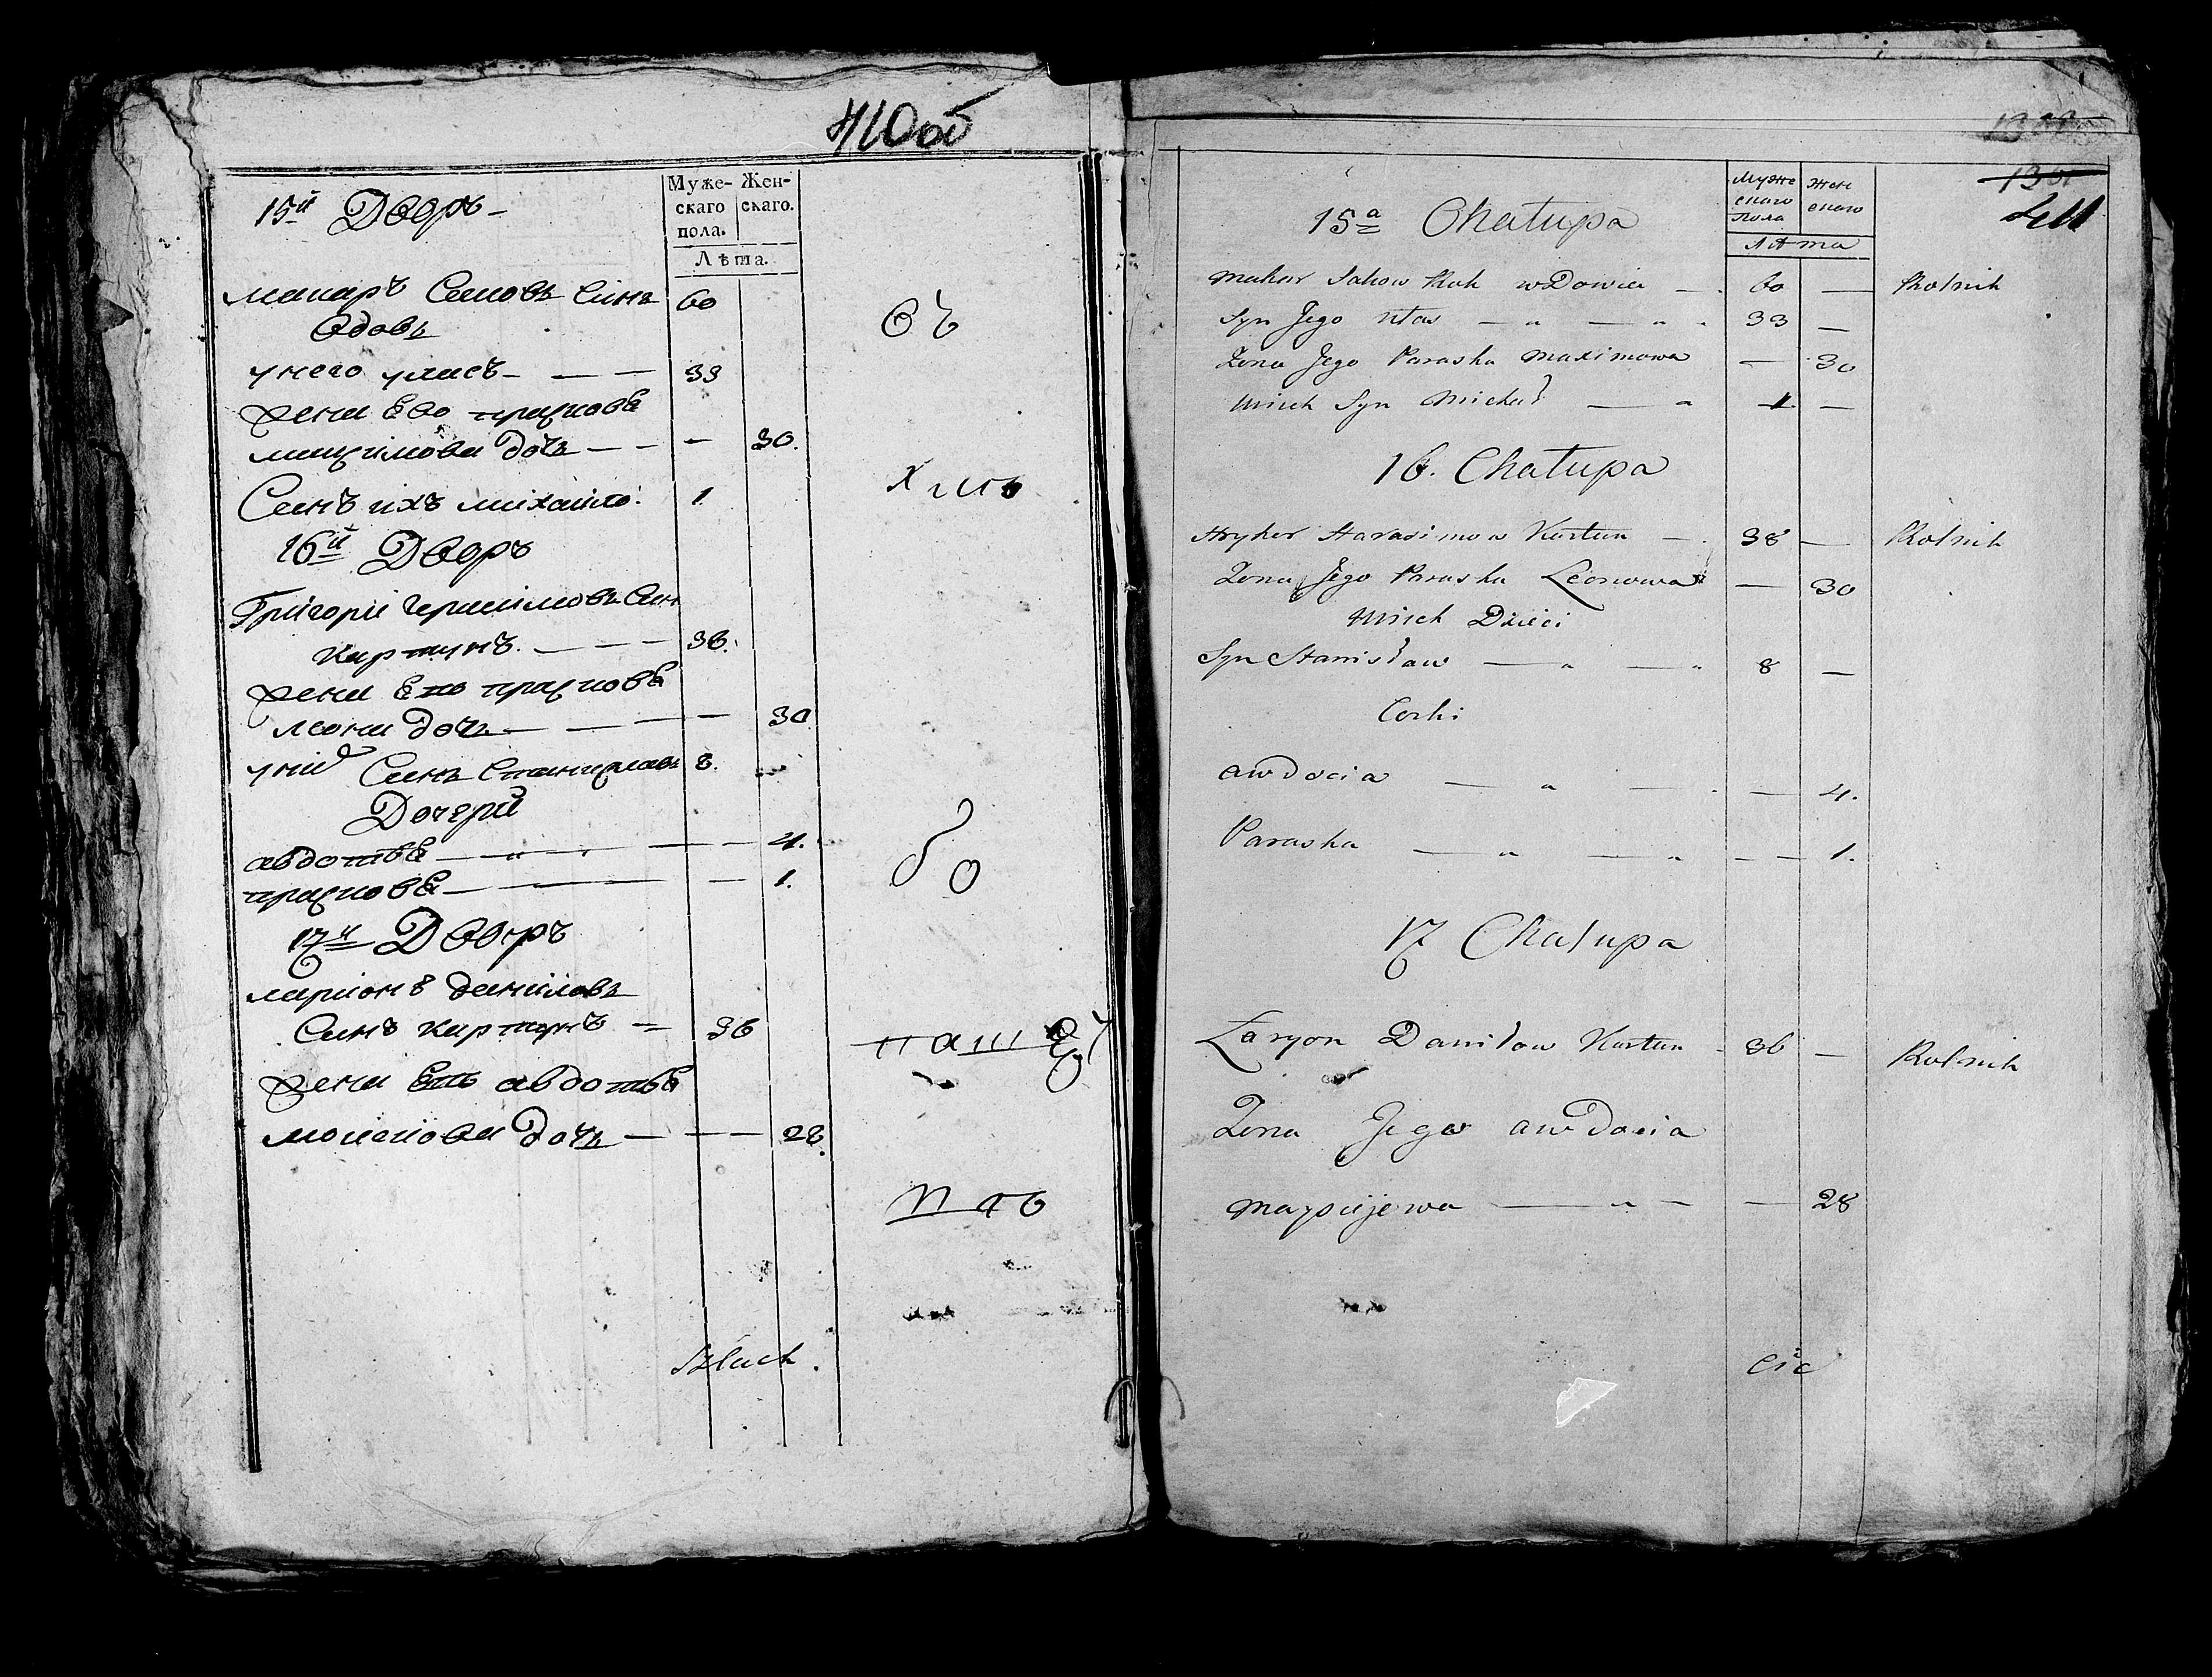 410об
15й Дворъ
Муже-
скаго
пола.
Жен-
скаго.
Лѣта.
Макаръ Синъ 60
Вдовъ
У него Уласъ 33
Жена Ево Прасковѣ
Максимова дочь 30.
Синъ ихъ Михайло. 1
16й Дворъ
Григори Герасимовъ Син
Картунъ. 38.
Жена Ево Прасковѣ
Леона дочь 30
У них Синъ Станиславъ 8.
Дочери
Авдотѣ 4.
Прасковѣ 1.
17й Дворъ
Ларионъ Даниловъ
Синъ Картунъ 36
Жена Ево Авдотѣ
дочь 28.
въ
бо
Szlach
411
15a Chałupa
Муже
скаго
пола
Жен
скаго
Лѣта
Makar wdowiec 60 — Rolnik
Syn Jego Ułas 33 —
Żona Jego Paraska Maximowa — 30
U nich Syn Michał 1 —
16. Chałupa
Hryhor Harasimow Kartun 38 — Rolnik
Żona Jego Paraska Leonowa — 30
U nich Dzieci
Syn Stanisław 8 —
Corki
Awdocia — 4.
Paraska — 1.
17 Chałupa
Łaryon Daniłow Kartun 36 — Rolnik
Żona Jego Awdocia
Maysiejewa — 28
cic